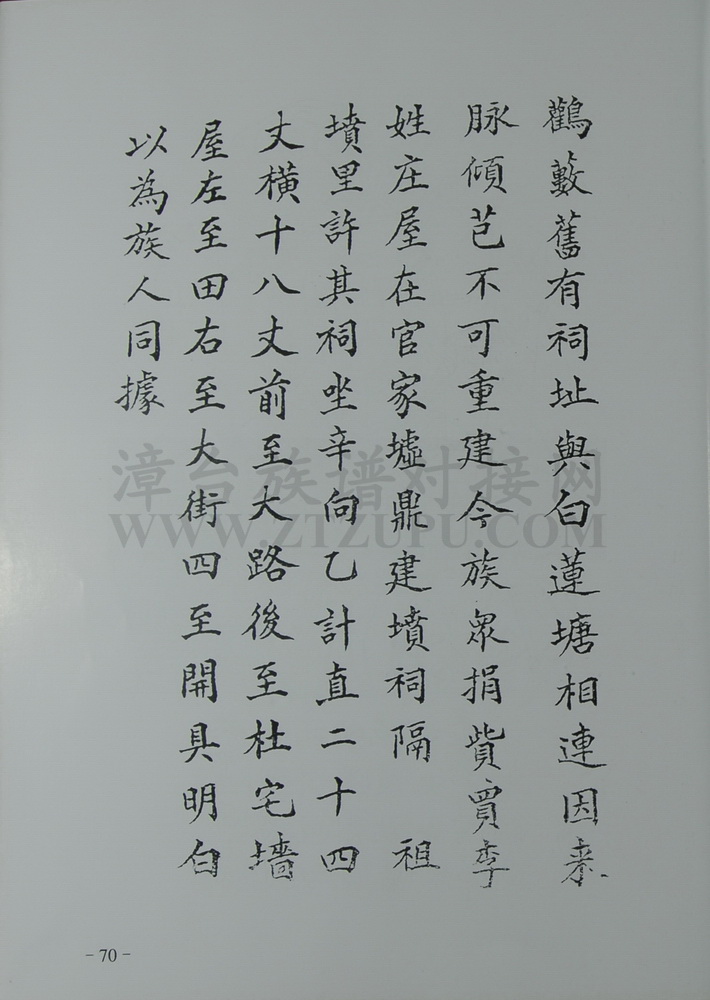 鸛藪舊有祠址與白蓮塘相連因来
脉傾芭不可重建今族眾捐貲買李
姓庄屋在官家墟鼎建墳祠隔　祖
墳里許其祠坐辛向乙計直二十四
丈橫十八丈前至大路後至杜宅墻
屋左至田右至大街四至開具明白
以為族人同據
漳台族谱对接网
WWW.ZTZUPU.COM
- 70 -